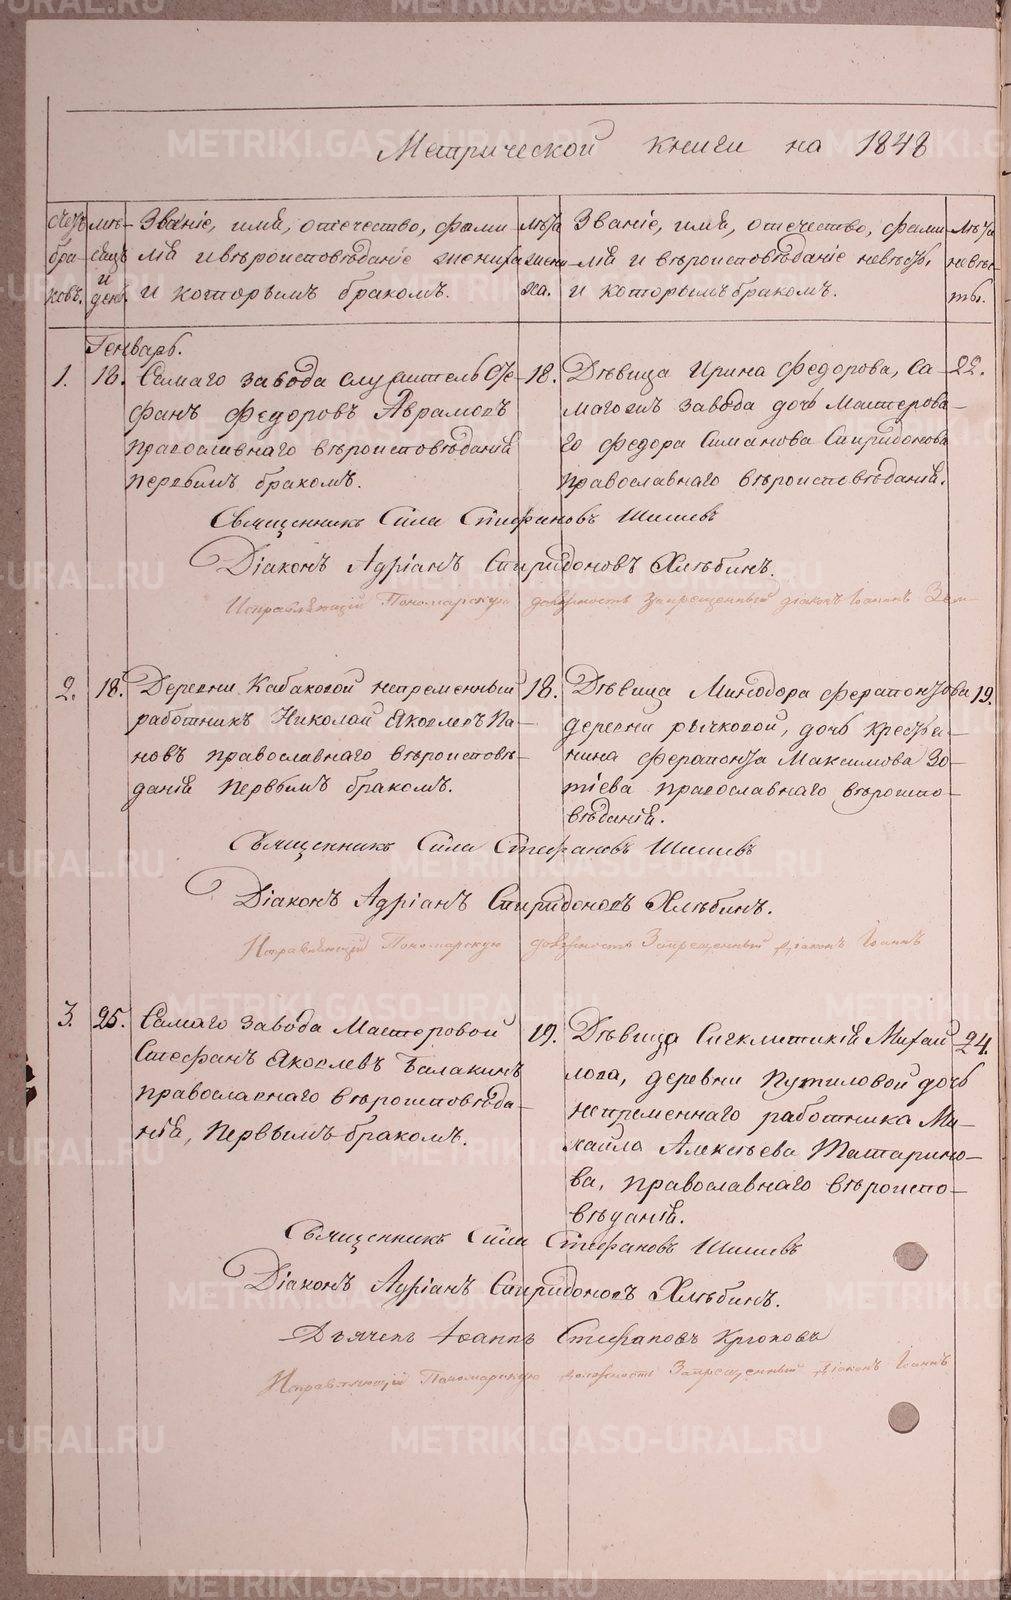 Метрической книги на 1848
Счетъ браковъ.
мѣсяцъ и день.
Званіе, имя, отечество, фами-
лія и вѣроисповѣданіе жениха
и которымъ бракомъ.
лѣта жениха.
Званіе, имя, отечество, фами-
лія и вѣроисповѣданіе невѣсты,
и которымъ бракомъ.
лѣта невѣсты.
Генварь.
1.
18.
Самаго завода служитель Сте-
фанъ Федоровъ Аврамовъ
православнаго вѣроисповѣданія
первымъ бракомъ.
18.
Дѣвица Ирина Федорова, Са-
магожъ завода дочь Мастерова-
го Федора Симанова Спиридонова
православнаго вѣроисповѣданія.
22.
Священникъ Сила Стефановъ Шишевъ
Діаконъ Адріанъ Спиридоновъ Хлѣбинъ.
Исправляющій Пономарскую должность Запрещенный діаконъ Іоаннъ
2.
18.
Деревни Кабаковой непременный
работникъ Николай Яковлевъ Па-
новъ православнаго вѣроисповѣ-
данія первымъ бракомъ.
18.
Дѣвица Минодора Ферапонтова
деревни рычковой, дочь крестья-
нина Ферапонта Максимова Зо-
тіева православнаго вѣроиспо-
вѣданія.
19.
Священникъ Сила Стефановъ Шишевъ
Діаконъ Адріанъ Спиридоновъ Хлѣбинъ.
Исправляющій Пономарскую должность Запрещенный діаконъ Іоаннъ
3.
25.
Самаго завода Мастеровой
Стефанъ Яковлевъ Балакинъ
православнаго вѣроисповѣда-
нія, первымъ бракомъ.
19.
Дѣвица Сигклитикія Михай
лова, деревни Путиловой дочь
непременнаго работника Ми-
хайла Алексѣева Татарино-
ва, православнаго вѣроиспо-
вѣданія.
24.
Священникъ Сила Стефановъ Шишевъ
Діаконъ Адріанъ Спиридоновъ Хлѣбинъ.
Дьячекъ Іоаннъ Стефановъ Крюковъ
Исправляющій Пономарскую должность Запрещенный діаконъ Іоаннъ
METRIKI.GASO-URAL.RU